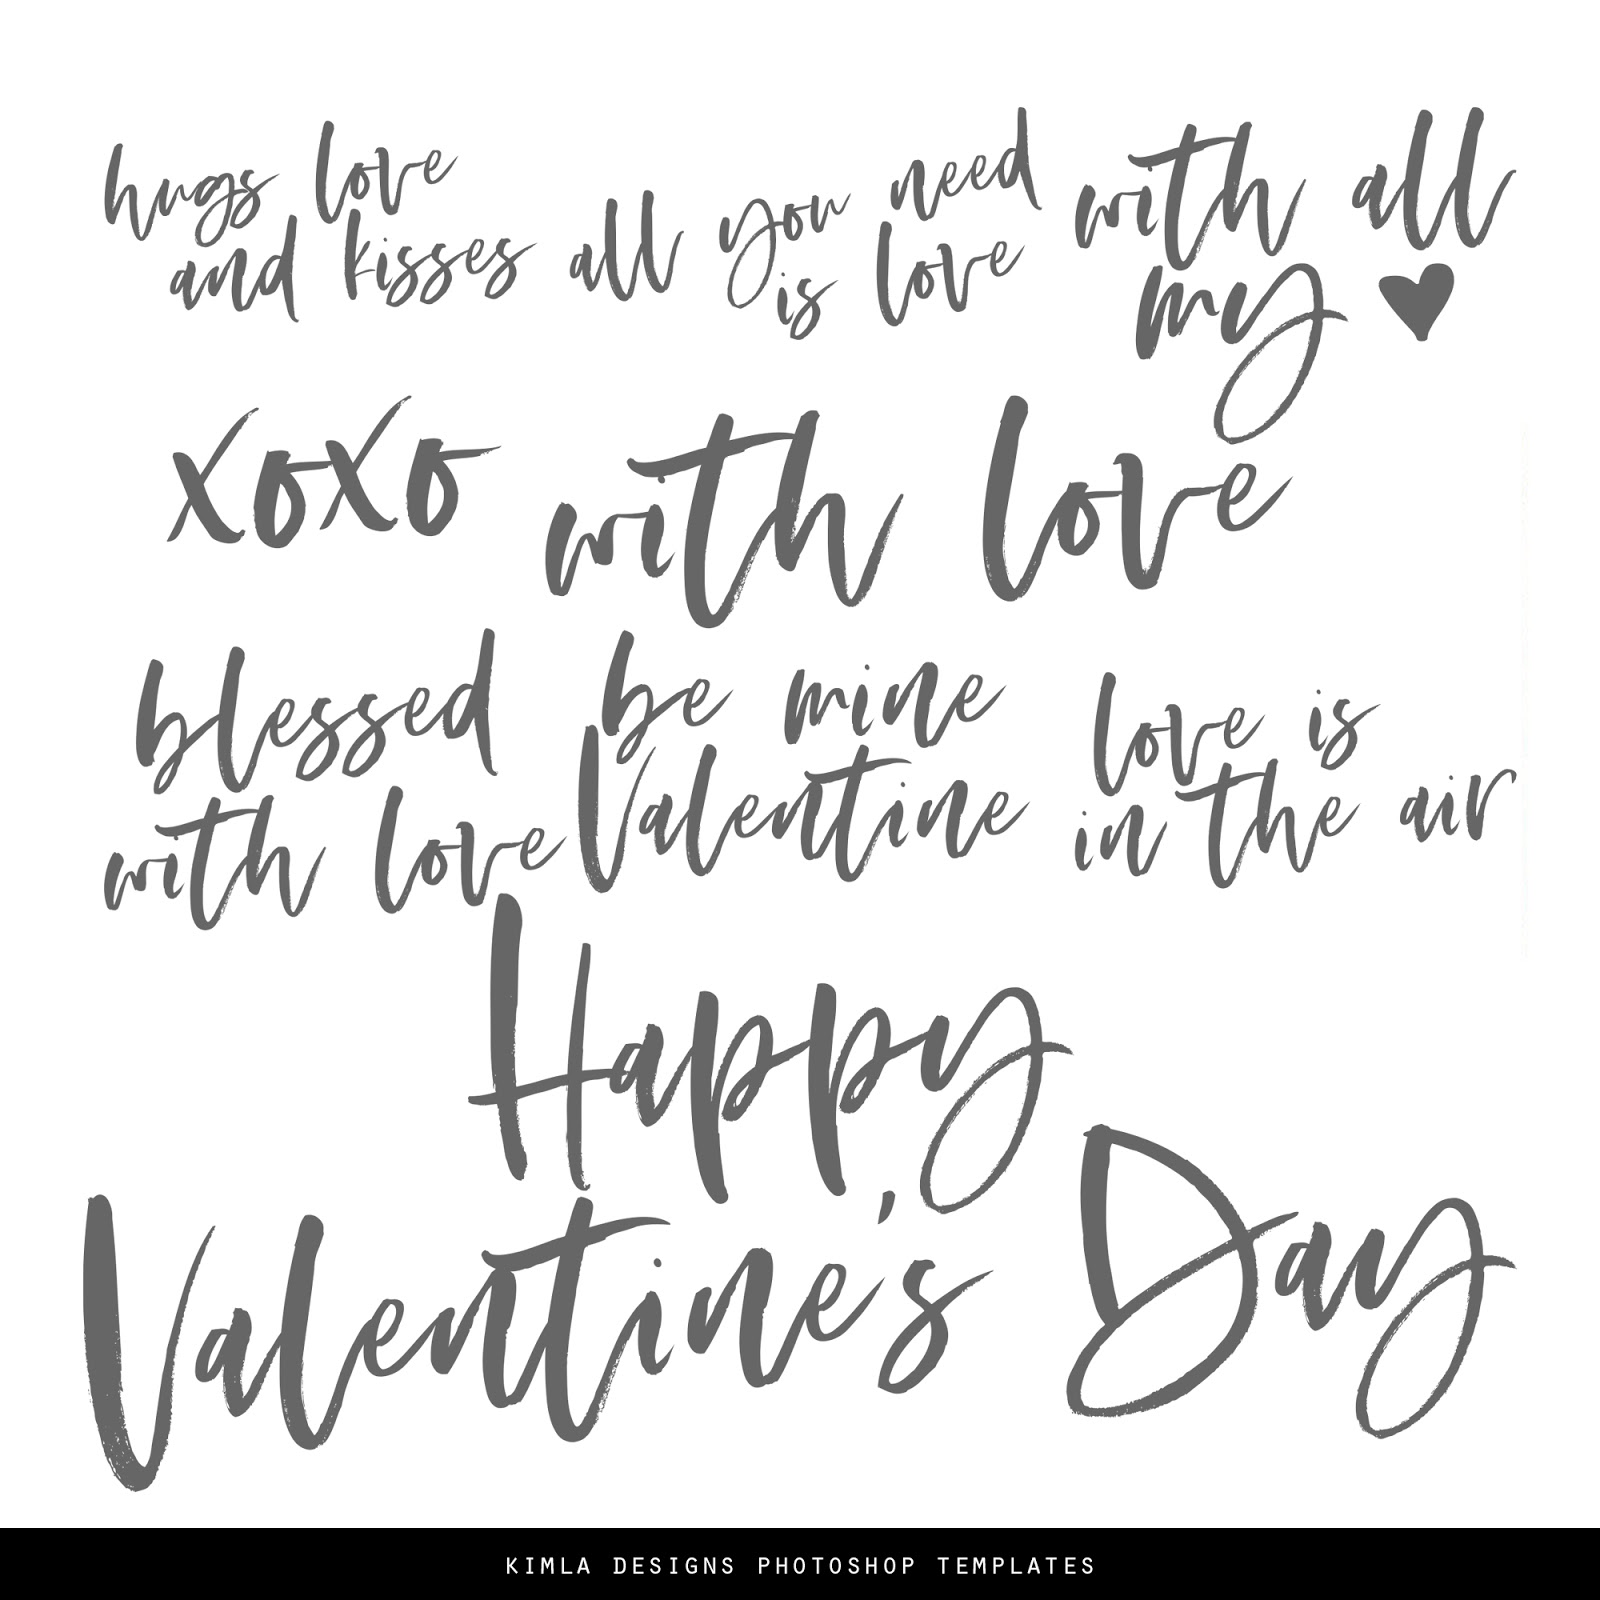 hugs love
and kisses
all you need
is love
with all
my ♥
xoxo
with love
blessed
with love
be mine
Valentine
love is
in the air
Happy
Valentine's Day
KIMLA DESIGNS PHOTOSHOP TEMPLATES